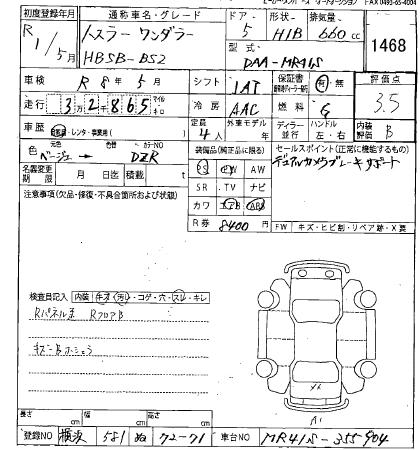 初度登録年月
通称車名・グレード
ドア・形状・排気量
R1/5月
ハスラー ワンダラー
HBSB-B52
5 H/B 660cc
型式
DAA-MR41S
1468
車検 R8年5月
シフト IAT
保証書 有・無
評価点 3.5
走行 32865
マイル キロ
冷房 AAC
燃料 G
車歴 自家用・レンタ・事業用( )
定員 4人
外車モデル 年
ディーラー 並行
ハンドル 左・右
内装評価 B
色 元色 色替 カラーNO
ベージュ→ DZR
装備品(純正品に限る)
セールスポイント(正常に機能するもの)
デュアルカメラブレーキサポート
名義変更期限 月 日迄
積載 t
PS PW AW
SR TV ナビ
カワ エアB ABS
R券 8400円
注意事項(欠品・修復・不具合箇所および状態)
FW キズ・ヒビ割・リペア跡・X要
検査員記入 内装 キズ・汚レ・コゲ・穴・スレ・キレ
RフロアB
長さ cm 幅 cm 高さ cm
A1
登録NO 横浜 581 ぬ 72-71
車台NO MR41S-355904